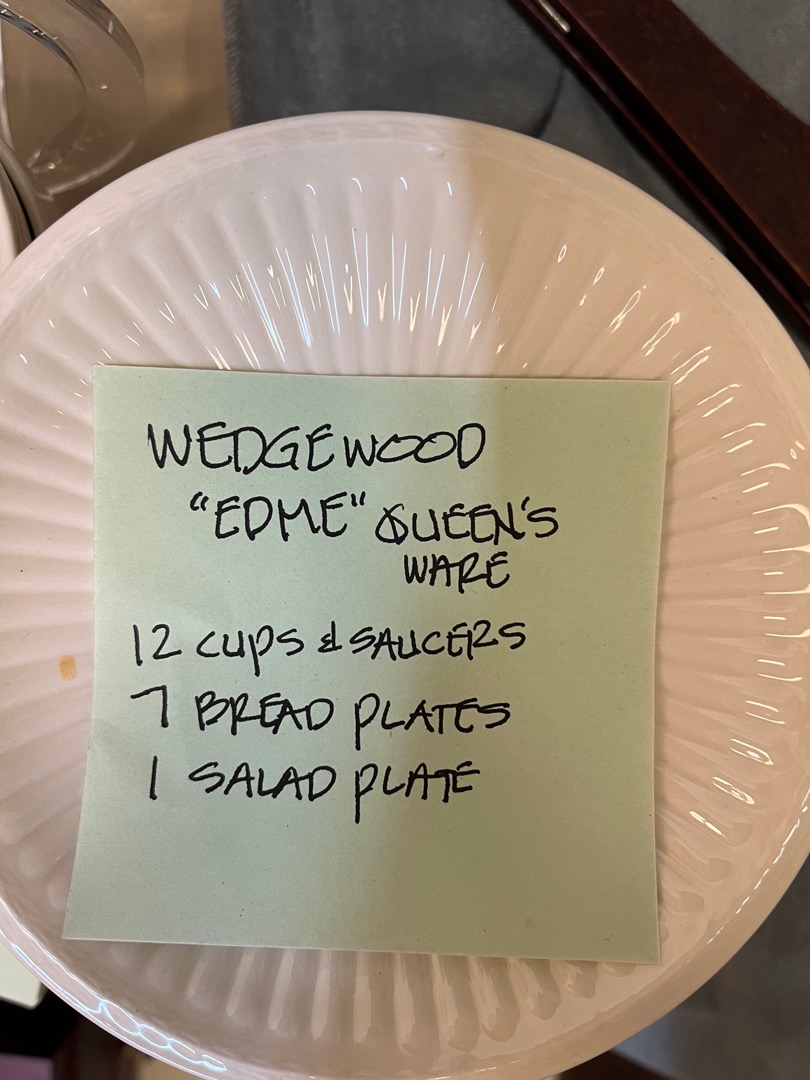 WEDGEWOOD
"EDME" QUEEN'S
WARE
12 CUPS & SAUCERS
7 BREAD PLATES
1 SALAD PLATE